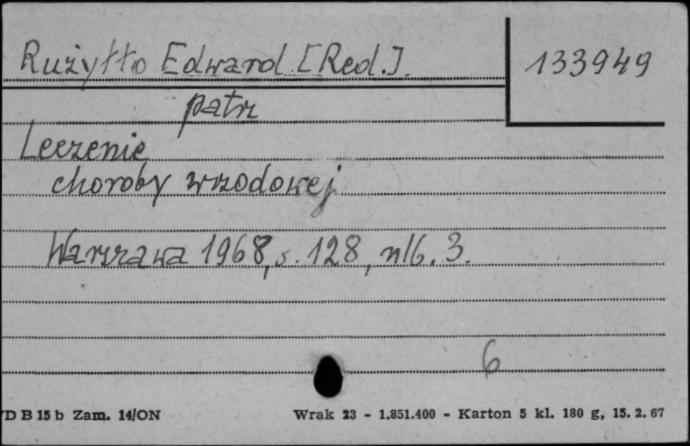 Rużyłło Edward [Red.].
133949
patrz
Leczenie
choroby wrzodowej
Warszawa 1968, s. 128, nlb. 3.
6
D B 15 b Zam. 14/ON
Wrak 23 - 1.851.400 - Karton 5 kl. 180 g, 15. 2. 67